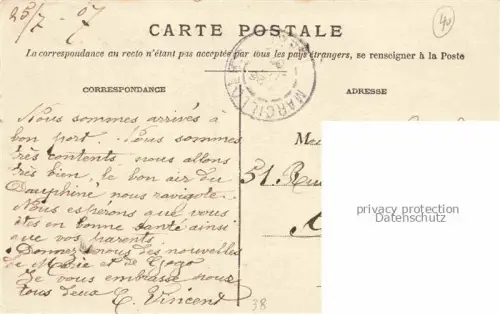 25/7-07
40
CARTE POSTALE
La correspondance au recto n'étant pas acceptée par tous les pays étrangers, se renseigner à la Poste
CORRESPONDANCE
ADRESSE
MARCILLOLES
Nous sommes arrivés à
bon port. Nous sommes
très contents, nous allons
très bien, le bon air du
Dauphiné nous ravigote.
Nous espérons que vous
êtes en bonne santé ainsi
que vos parents.
Donnez nous des nouvelles
de Marie et de
Je vous embrasse nous
tous deux C. Vincent
51. Rue
privacy protection
Datenschutz
38